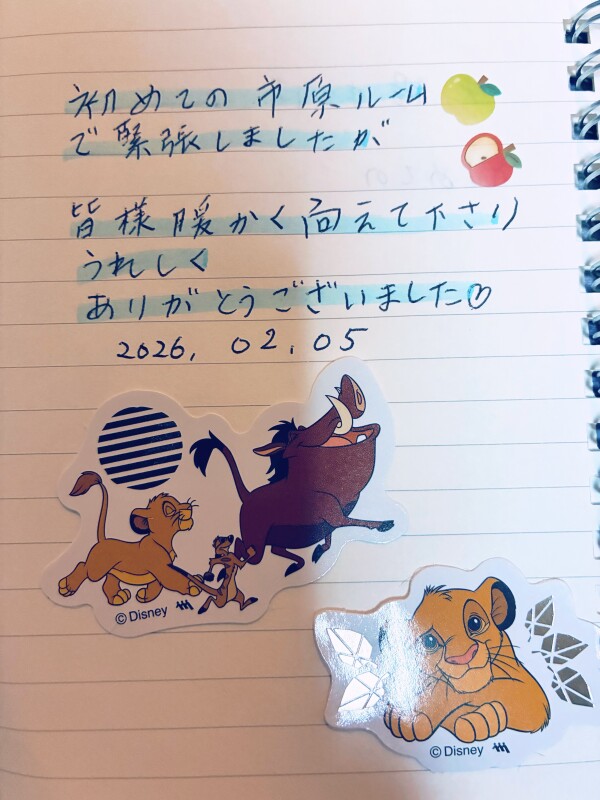 初めての市原ルーム
で緊張しましたが
皆様暖かく向えて下さり
うれしく
ありがとうございました♡
2026. 02. 05
©Disney
©Disney